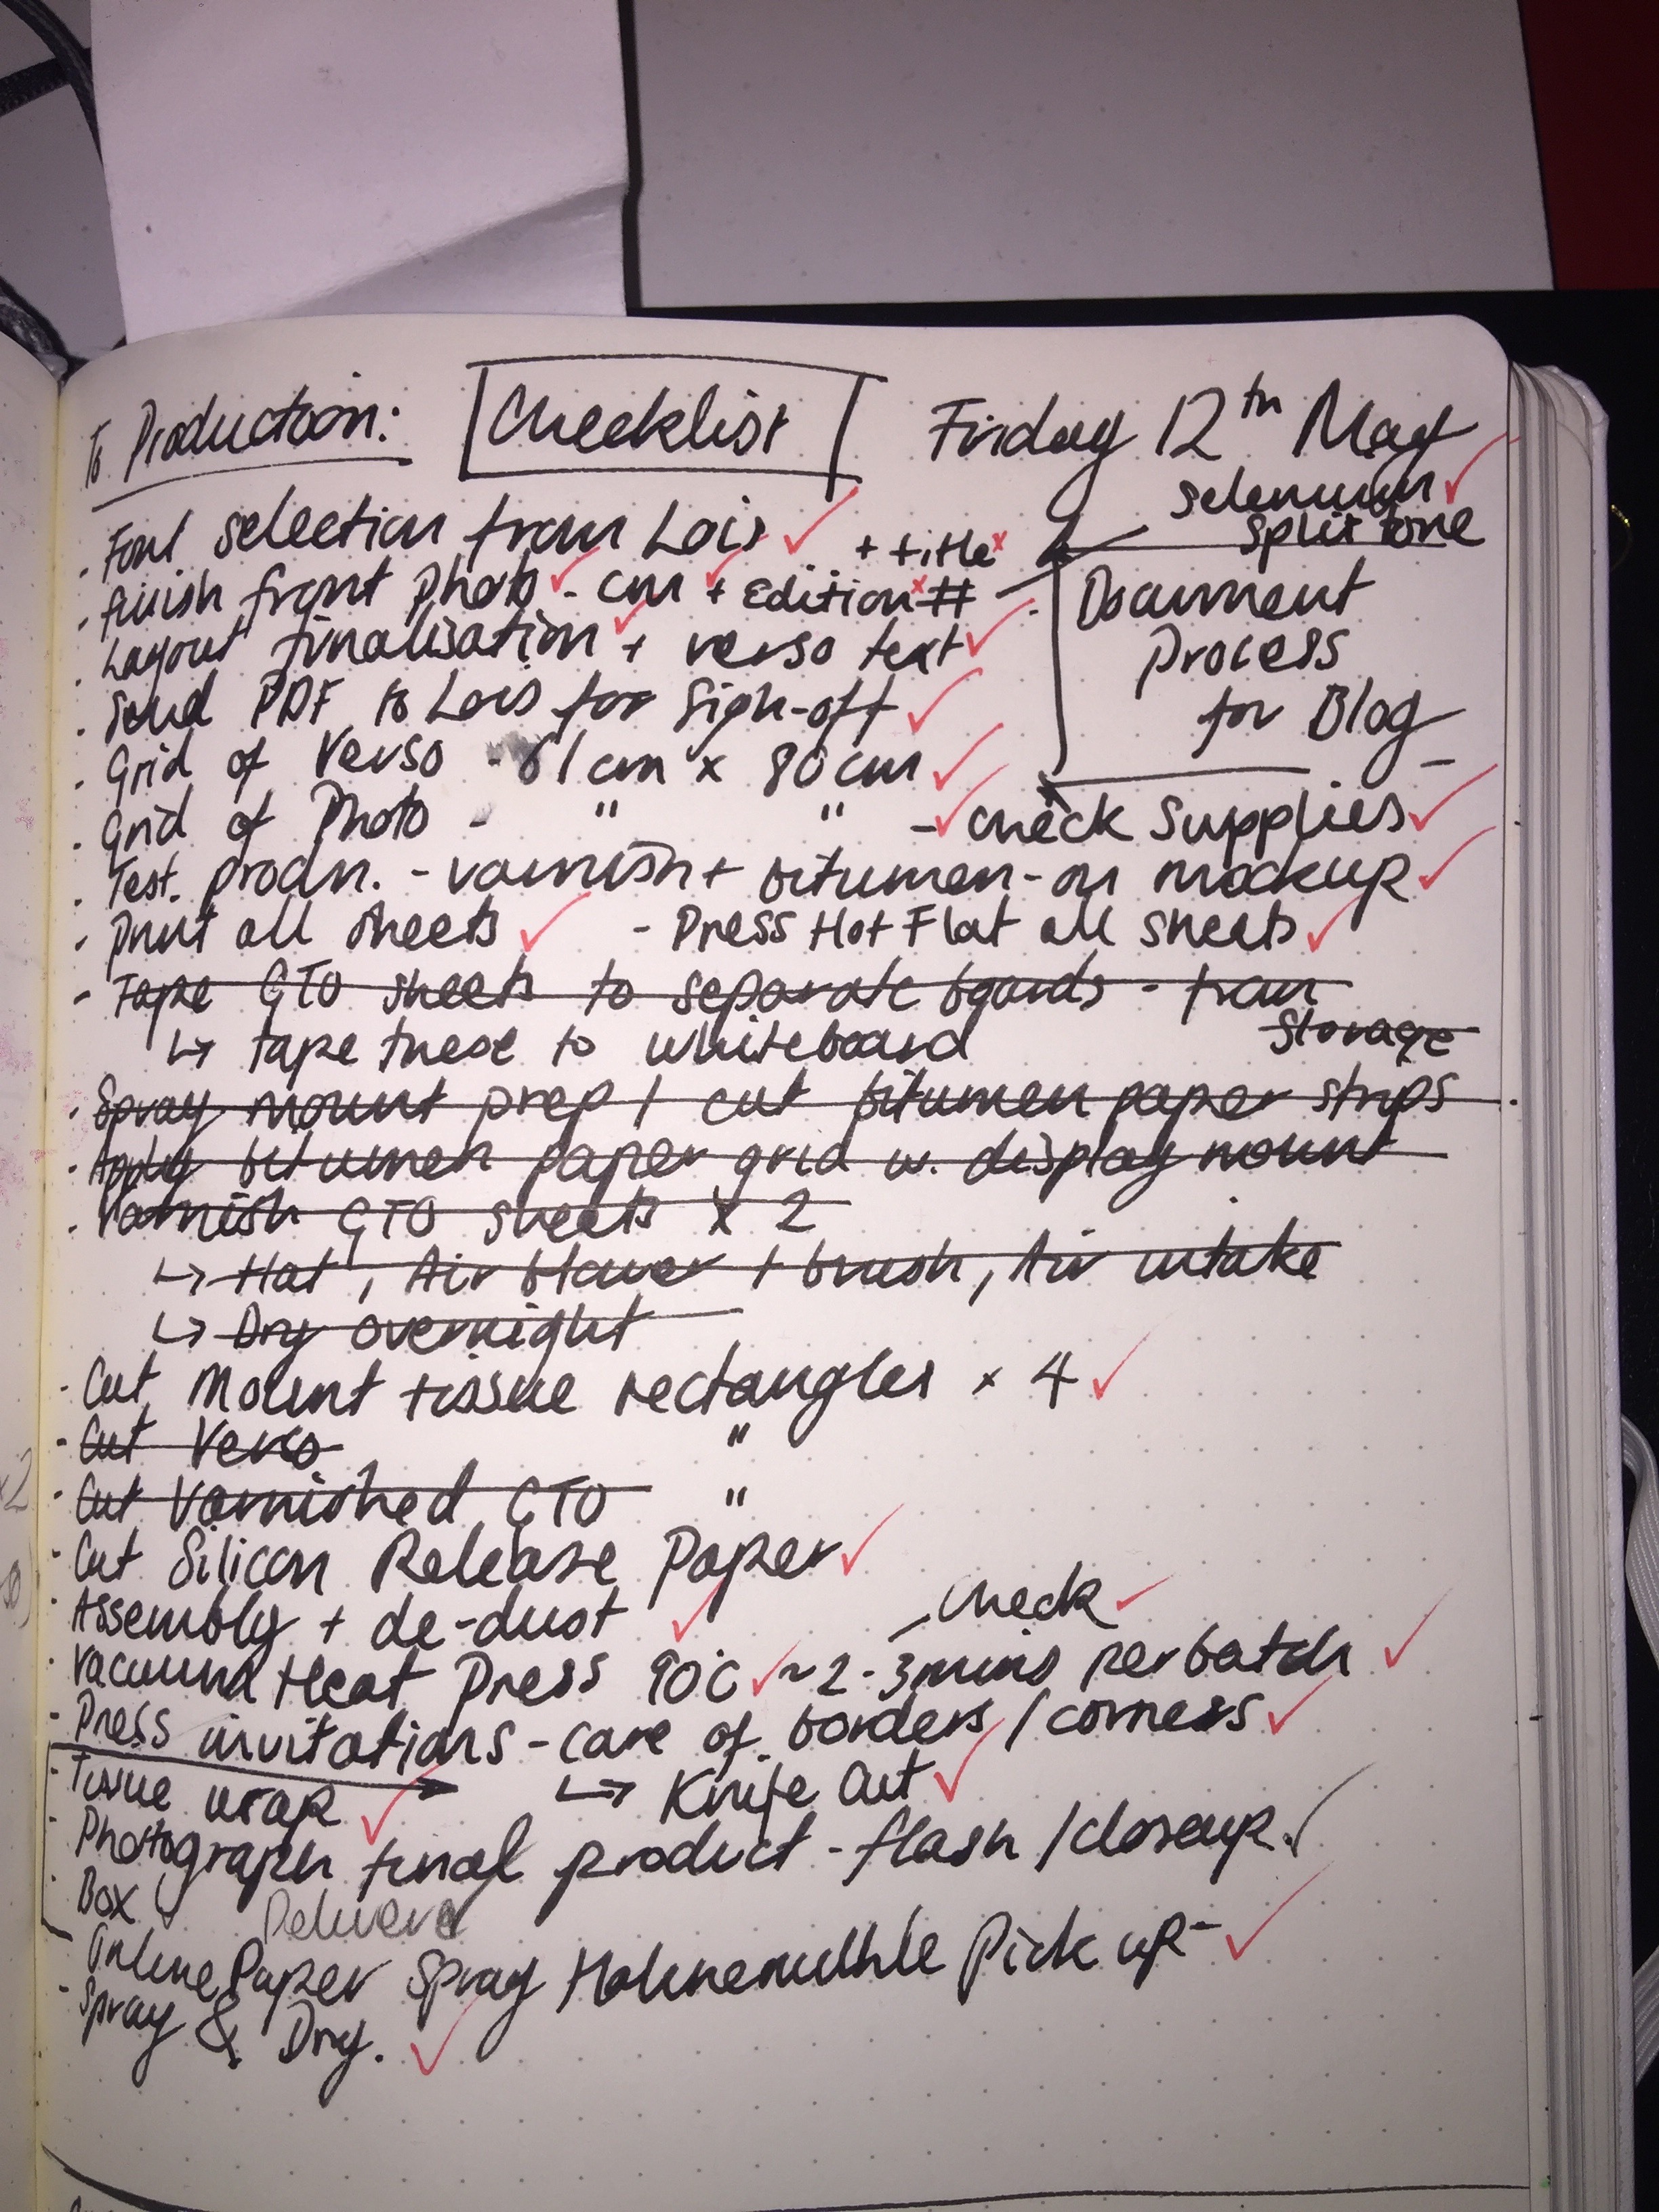 To Production: Checklist Friday 12th May
selenium
split tone
. Font selection from Lois
+ title
. finish front photo - cm + Edition #
. Layout finalisation + verso text
. Send PDF to Lois for Sign-off
. Grid of Verso - 61cm x 80cm
. Grid of Photo - " " - check supplies
Document
Process
for Blog
. Test. prodn. - varnish + bitumen - on mockup
. Print all sheets - Press Hot Flat all sheets
- Tape GTO sheets to separate boards - from
storage
↳ tape these to whiteboard
. Spray mount prep / cut bitumen paper strips
. Apply bitumen paper grid w. display mount
. Varnish GTO sheets x 2
↳ Hat, Air blower + brush, Air intake
↳ Dry overnight
. Cut Mount tissue rectangles x 4
. Cut Verso "
. Cut Varnished GTO "
. Cut Silicon Release Paper
. Assembly + de-dust
check
. Vacuum Heat Press 90°C ~ 2-3mins per batch
- Press invitations - care of borders / corners
↳ Knife Cut
- Tissue wrap
. Photograph final product - flash / closeup.
. Box
Deliver
. Online Paper Spray Hahnemulhle Pick up -
- Spray & Dry.